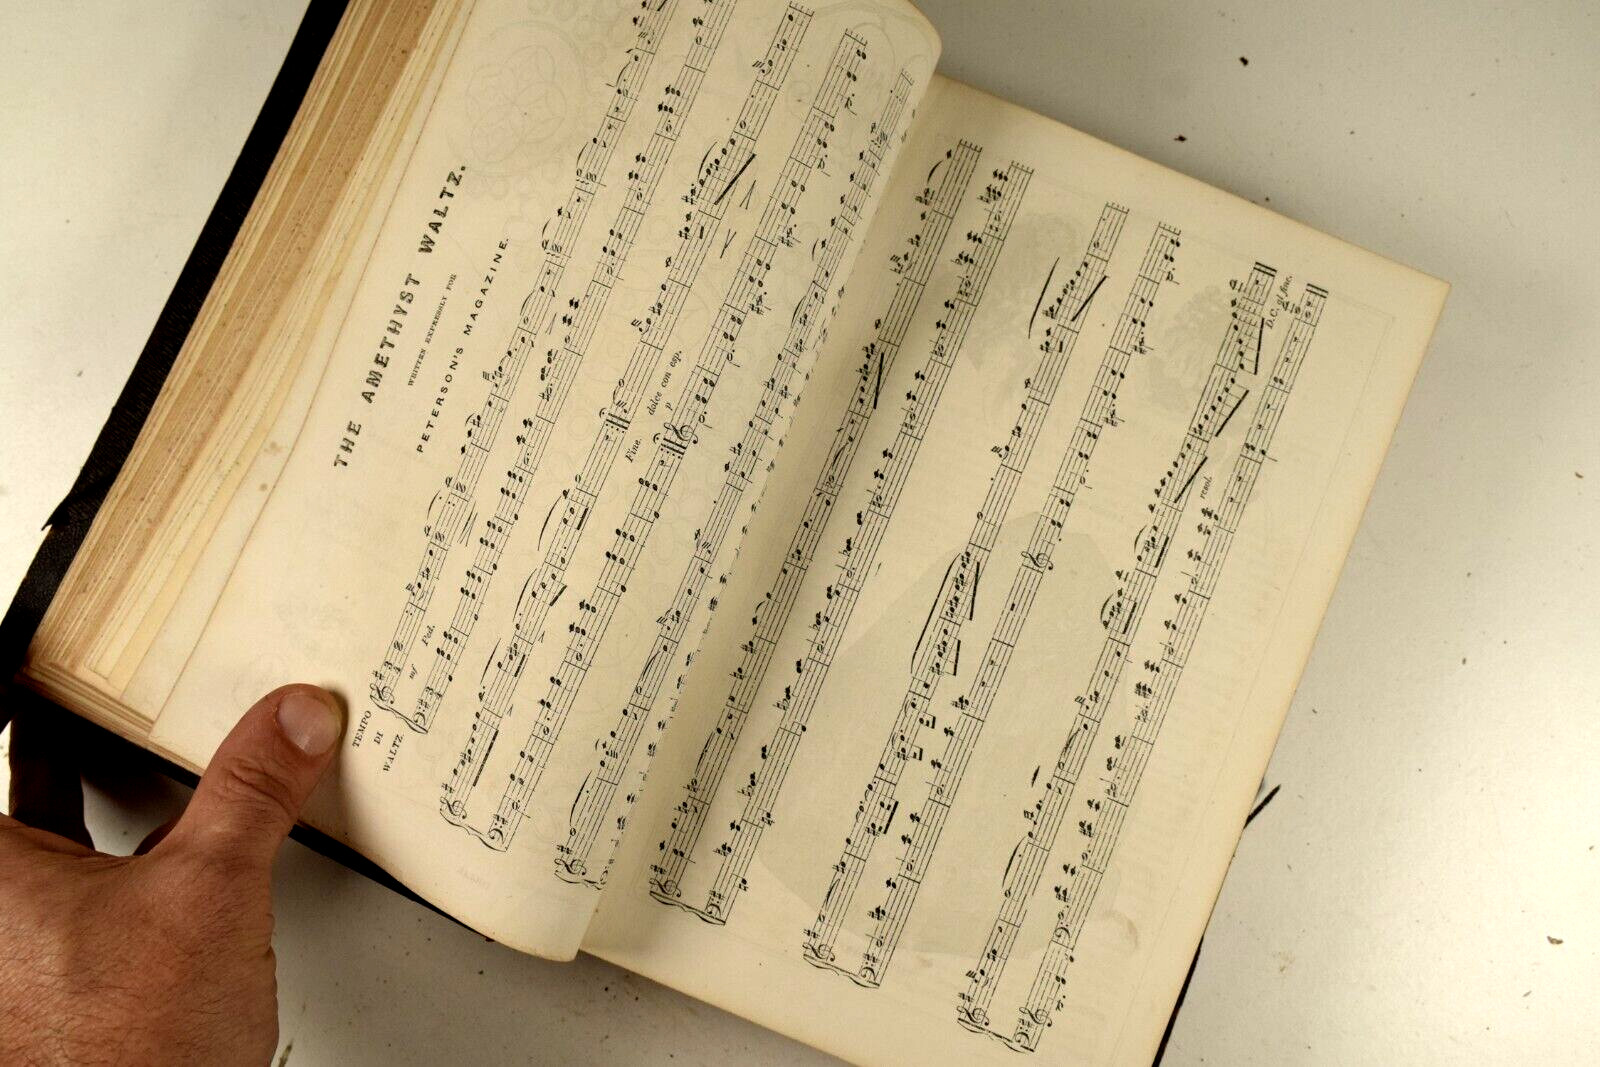 THE AMETHYST WALTZ.
WRITTEN EXPRESSLY FOR
PETERSON'S MAGAZINE.
TEMPO
DI
WALTZ.
mf
Ped.
Fine.
dolce con esp.
p
rinf.
D.C. al fine.